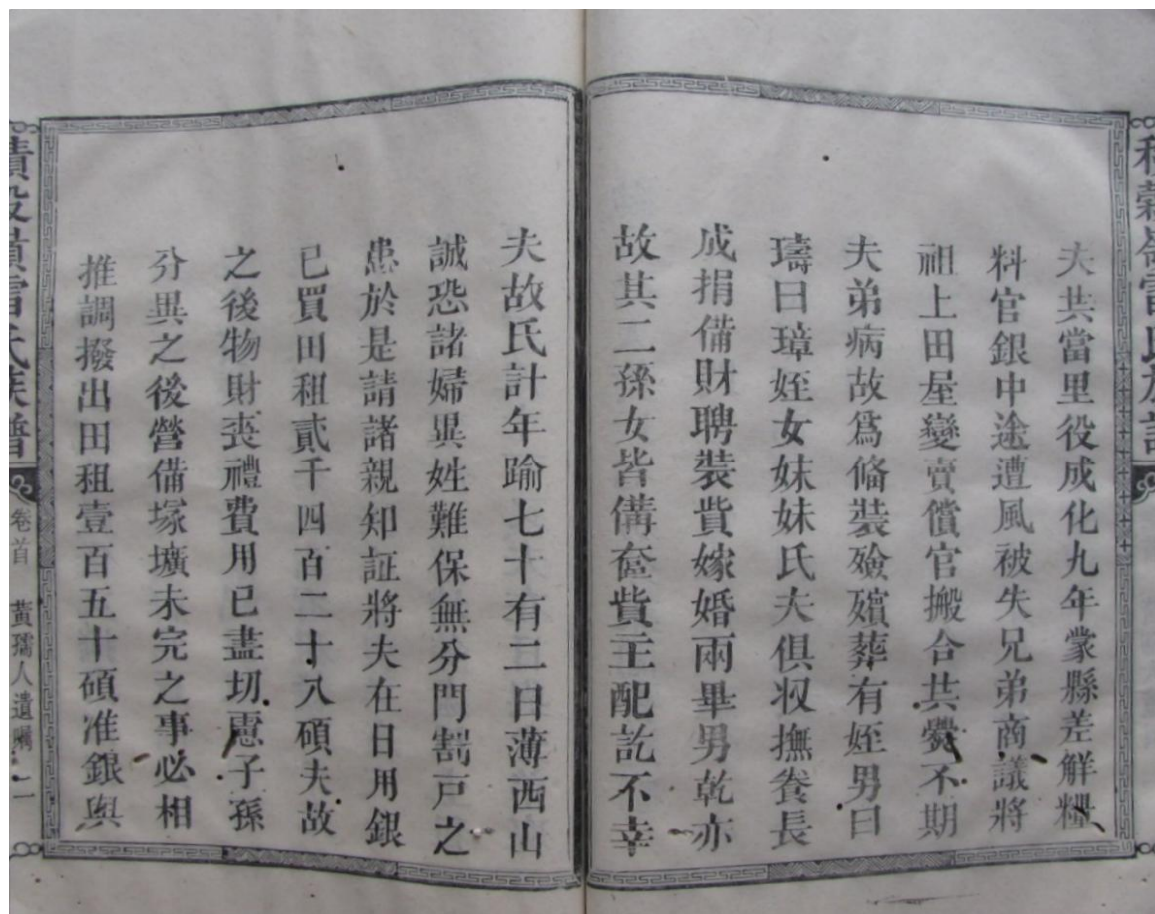 夫共當里役成化九年蒙縣差解糧
料官銀中途遭風被失兄弟商議將
祖上田屋變賣償官搬合共爨不期
夫弟病故爲脩裝殮殯葬有姪男曰
璹曰璋姪女妹妹氏夫俱收撫養長
成捐備財聘裝貲嫁婚兩畢男乾亦
故其二孫女皆備奩貲主配訖不幸
夫故氏計年踰七十有二日薄西山
誠恐諸婦異姓難保無分門割戸之
患於是請諸親知証將夫在日用銀
已買田租貳千四百二十八碩夫故
之後物財喪禮費用已盡切慮子孫
分異之後營備塚壙未完之事必相
推調撥出田租壹百五十碩准銀與
積穀嶺雷氏族譜
卷首
黃孺人遺囑
二